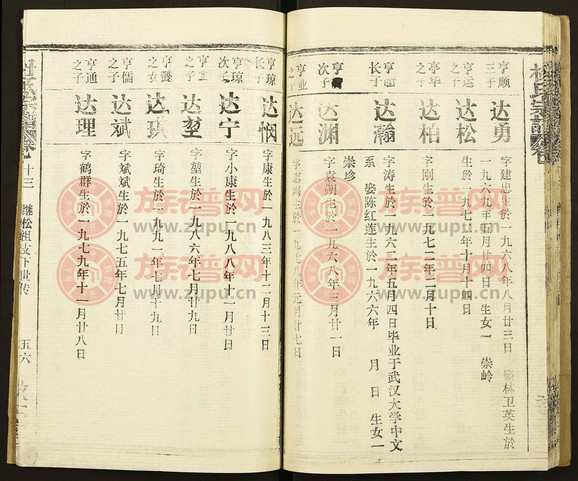 杜氏宗谱
亨顺
三子
达勇
字建忠生於一九六八年八月廿三日 娶林卫英生於
一九六九年五月廿四日 生女一 崇岭
亨运
之子
达松
生於一九七二年十月十四日
亨华
之子
达柏
字刚生於一九七二年二月十日
长子
达瀚
字涛生於一九六二年五月四日毕业于武汉大学中文
系 娶陈红莲生於一九六六年 月 日 生女一
崇珍
次子
达渊
生於一九六八年三月一日
亨业
之子
达远
生於一九七八年元月廿七日
亨琼
长子
达悯
字康生於一九八三年十二月十三日
亨琼
次子
达宁
字小康生於一九八八年十一日
之子
达堃
字堃生於一九八六年七月廿日
之女
达琪
字琦生於一九九一年七月十九日
亨儒
之子
达斌
字斌斌生於一九七五年七月廿九日
亨通
之子
达理
字鹤群生於一九七九年十一月廿八日
十三
继松祖支下世传
五六
族谱网
www.zupu.cn
族谱网
www.zupu.cn
族谱网
www.zupu.cn
族谱网
www.zupu.cn